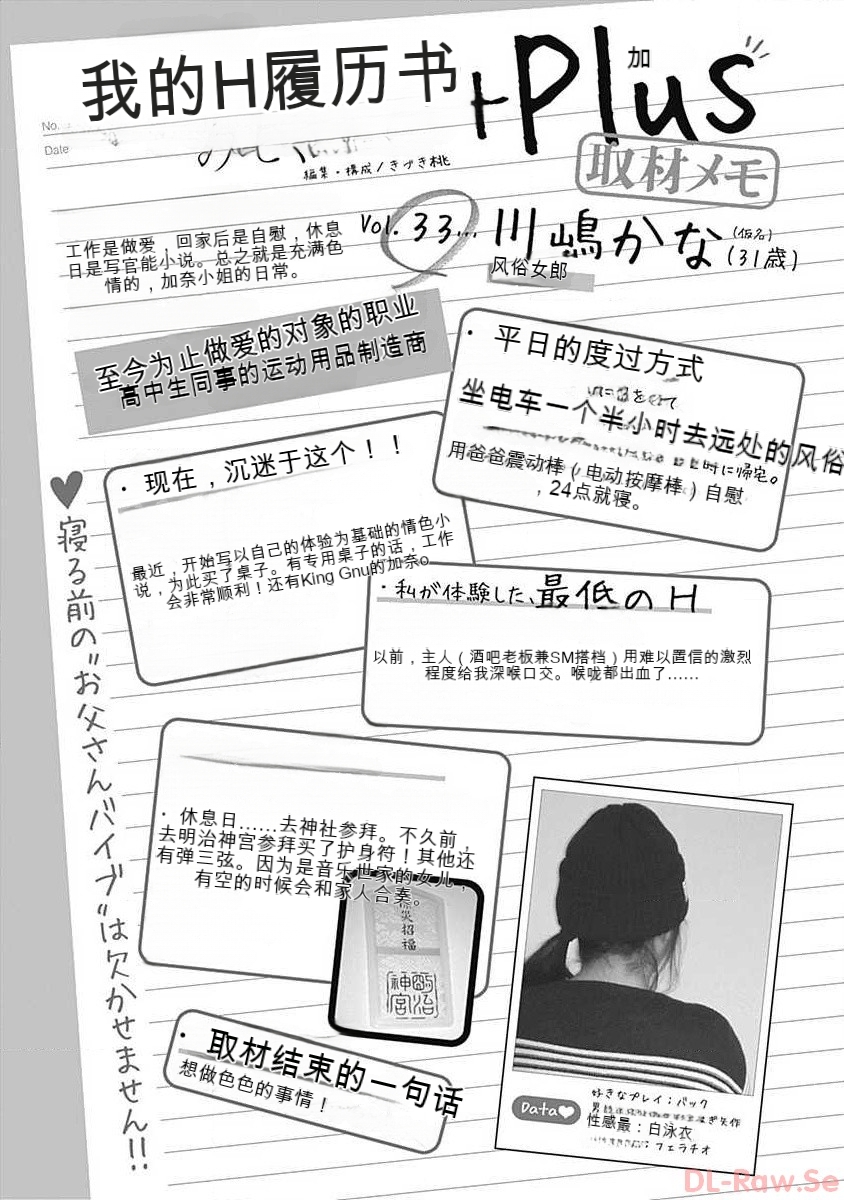 我的H履历书
+Plus
加
No.
Date
編集・構成/きづき桃
取材メモ
Vol. 33…
川嶋かな
(仮名)
(31歳)
风俗女郎
工作是做爱，回家后是自慰，休息
日是写官能小说。总之就是充满色
情的，加奈小姐的日常。
至今为止做爱的对象的职业
高中生同事的运动用品制造商
・ 平日的度过方式
坐电车一个半小时去远处的风俗
時に帰宅。
用爸爸震动棒（电动按摩棒）自慰
，24点就寝。
・ 现在，沉迷于这个！！
最近，开始写以自己的体验为基础的情色小
说，为此买了桌子。有专用桌子的话，工作
会非常顺利！还有King Gnu的加奈o
・私が体験した、最低のH
以前，主人（酒吧老板兼SM搭档）用难以置信的激烈
程度给我深喉口交。喉咙都出血了……
♥寝る前の"お父さんバイブ"は欠かせません!!
・ 休息日……去神社参拜。不久前，
去明治神宫参拜买了护身符！其他还
有弹三弦。因为是音乐世家的女儿，
有空的时候会和家人合奏。
災招福
・ 取材结束的一句话
想做色色的事情！
Data♥
好きなプレイ：バック
性感最：白泳衣
フェラチオ
DL-Raw.Se